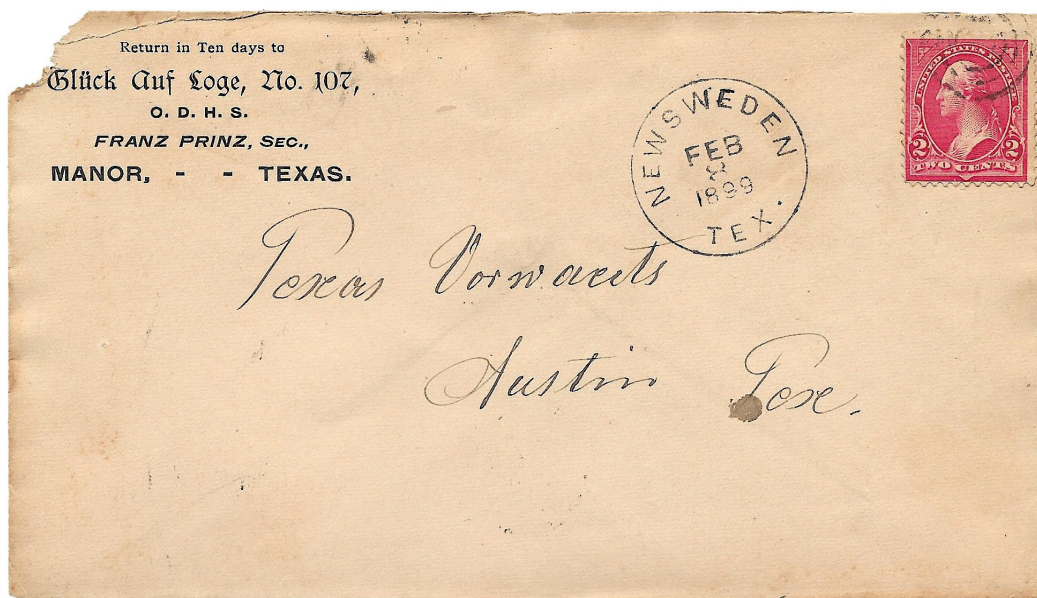 Return in Ten days to
Glück Auf Loge, No. 107,
O. D. H. S.
FRANZ PRINZ, SEC.,
MANOR, - - TEXAS.
NEW SWEDEN
FEB
8
1899
TEX.
UNITED STATES POSTAGE
2 2
TWO CENTS
Texas Vorwaerts
Austin Tex.